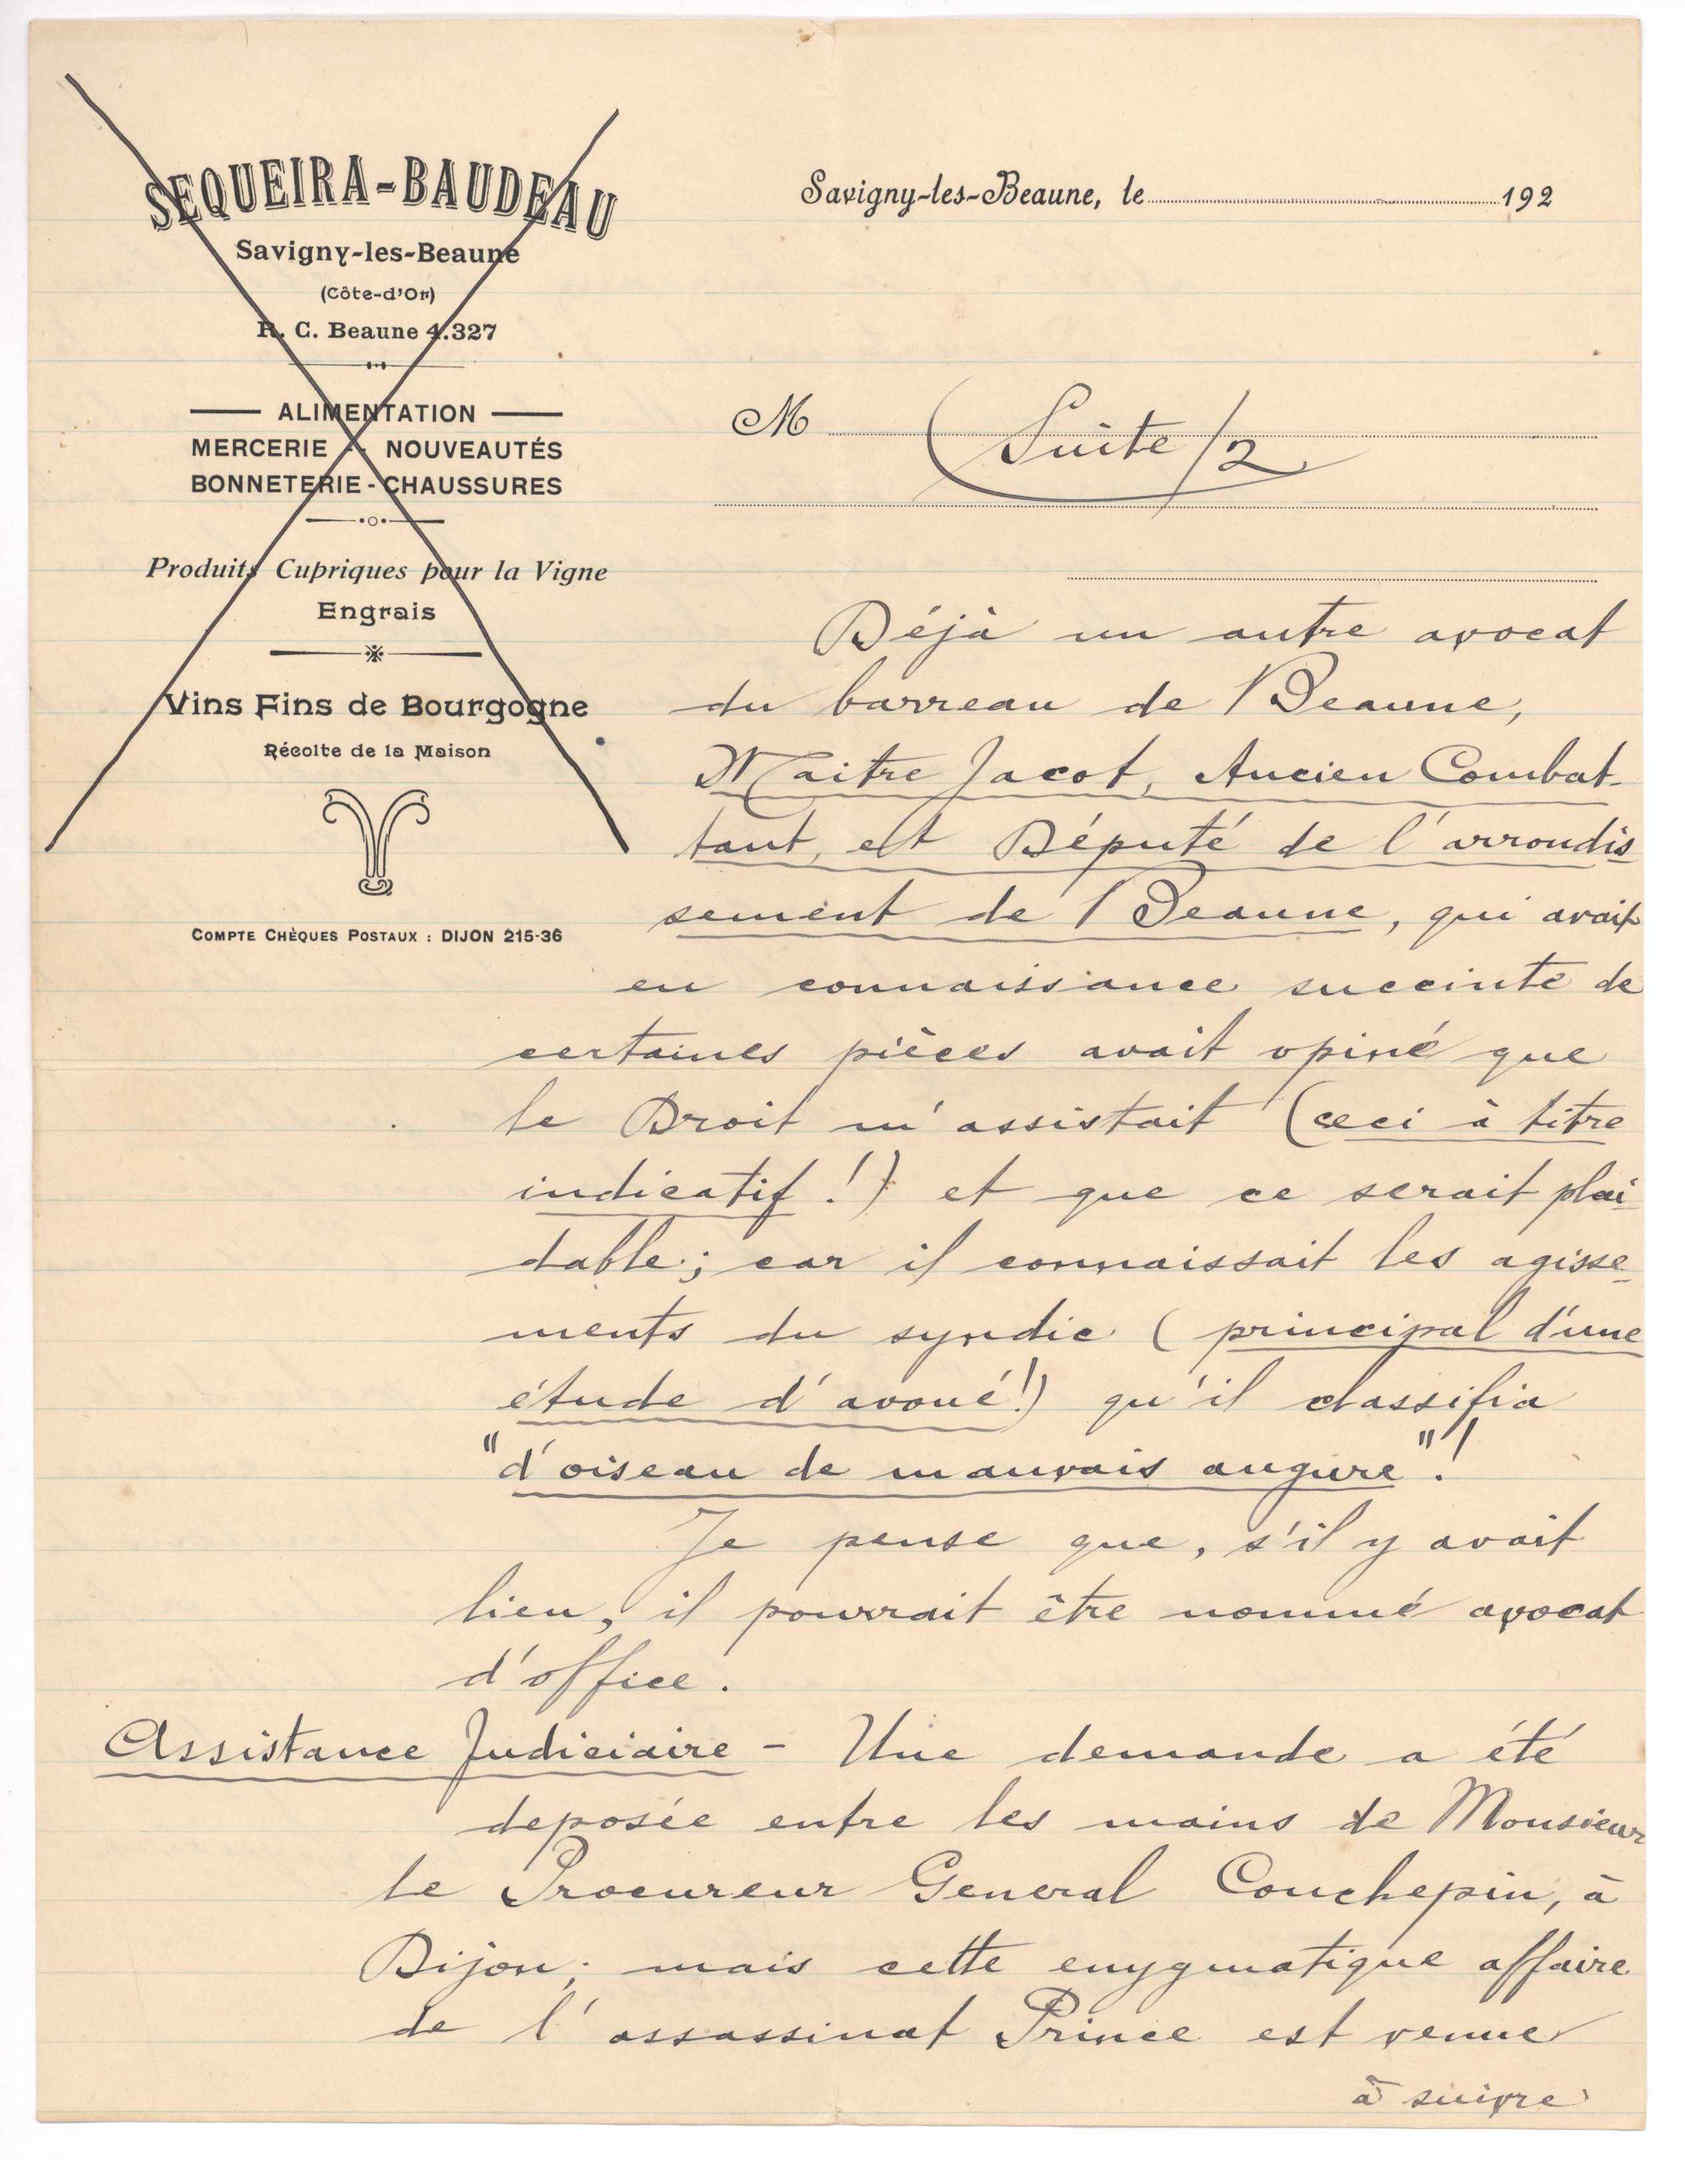 SEQUEIRA-BAUDEAU
Savigny-les-Beaune
(Côte-d'Or)
R. C. Beaune 4.327
ALIMENTATION
MERCERIE - NOUVEAUTÉS
BONNETERIE - CHAUSSURES
Produits Cupriques pour la Vigne
Engrais
Vins Fins de Bourgogne
Récolte de la Maison
COMPTE CHÈQUES POSTAUX : DIJON 215-36
Savigny-les-Beaune, le 192
M
(Suite/2
Déjà un autre avocat
du barreau de Beaune,
Maitre Jacot, Ancien Combat-
tant, et Député de l'arrondis
sement de Beaune, qui avait
eu connaissance succinte de
certaines pièces avait opiné que
le Droit m'assistait (ceci à titre
indicatif !) et que ce serait plai-
dable ; car il connaissait les agisse-
ments du syndic (principal d'une
étude d'avoué !) qu'il classifia
"d'oiseau de mauvais augure" !
Je pense que, s'il y avait
lieu, il pourrait être nommé avocat
d'office.
Assistance Judiciaire - Une demande a été
deposée entre les mains de Monsieur
le Procureur General Couchepin, à
Dijon ; mais cette enygmatique affaire
de l'assassinat Prince est venue
à suivre